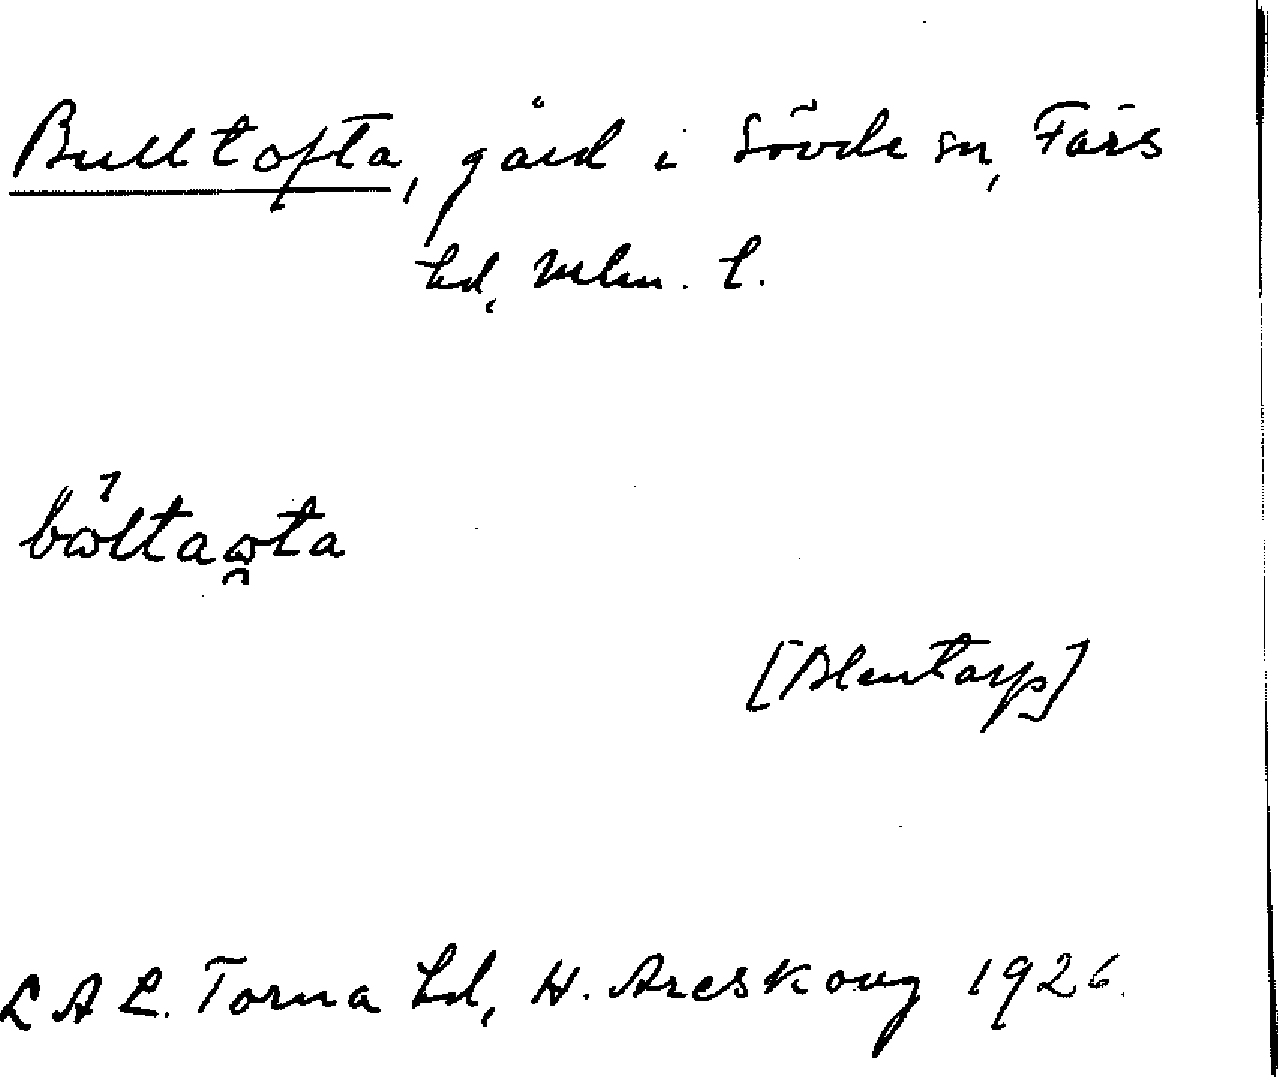 Bulltofta, gård i Sövde sn, Färs
hd, Mlm. l.
[Blentarp]
L A L. Torna hd, H. Areskoug 1926.